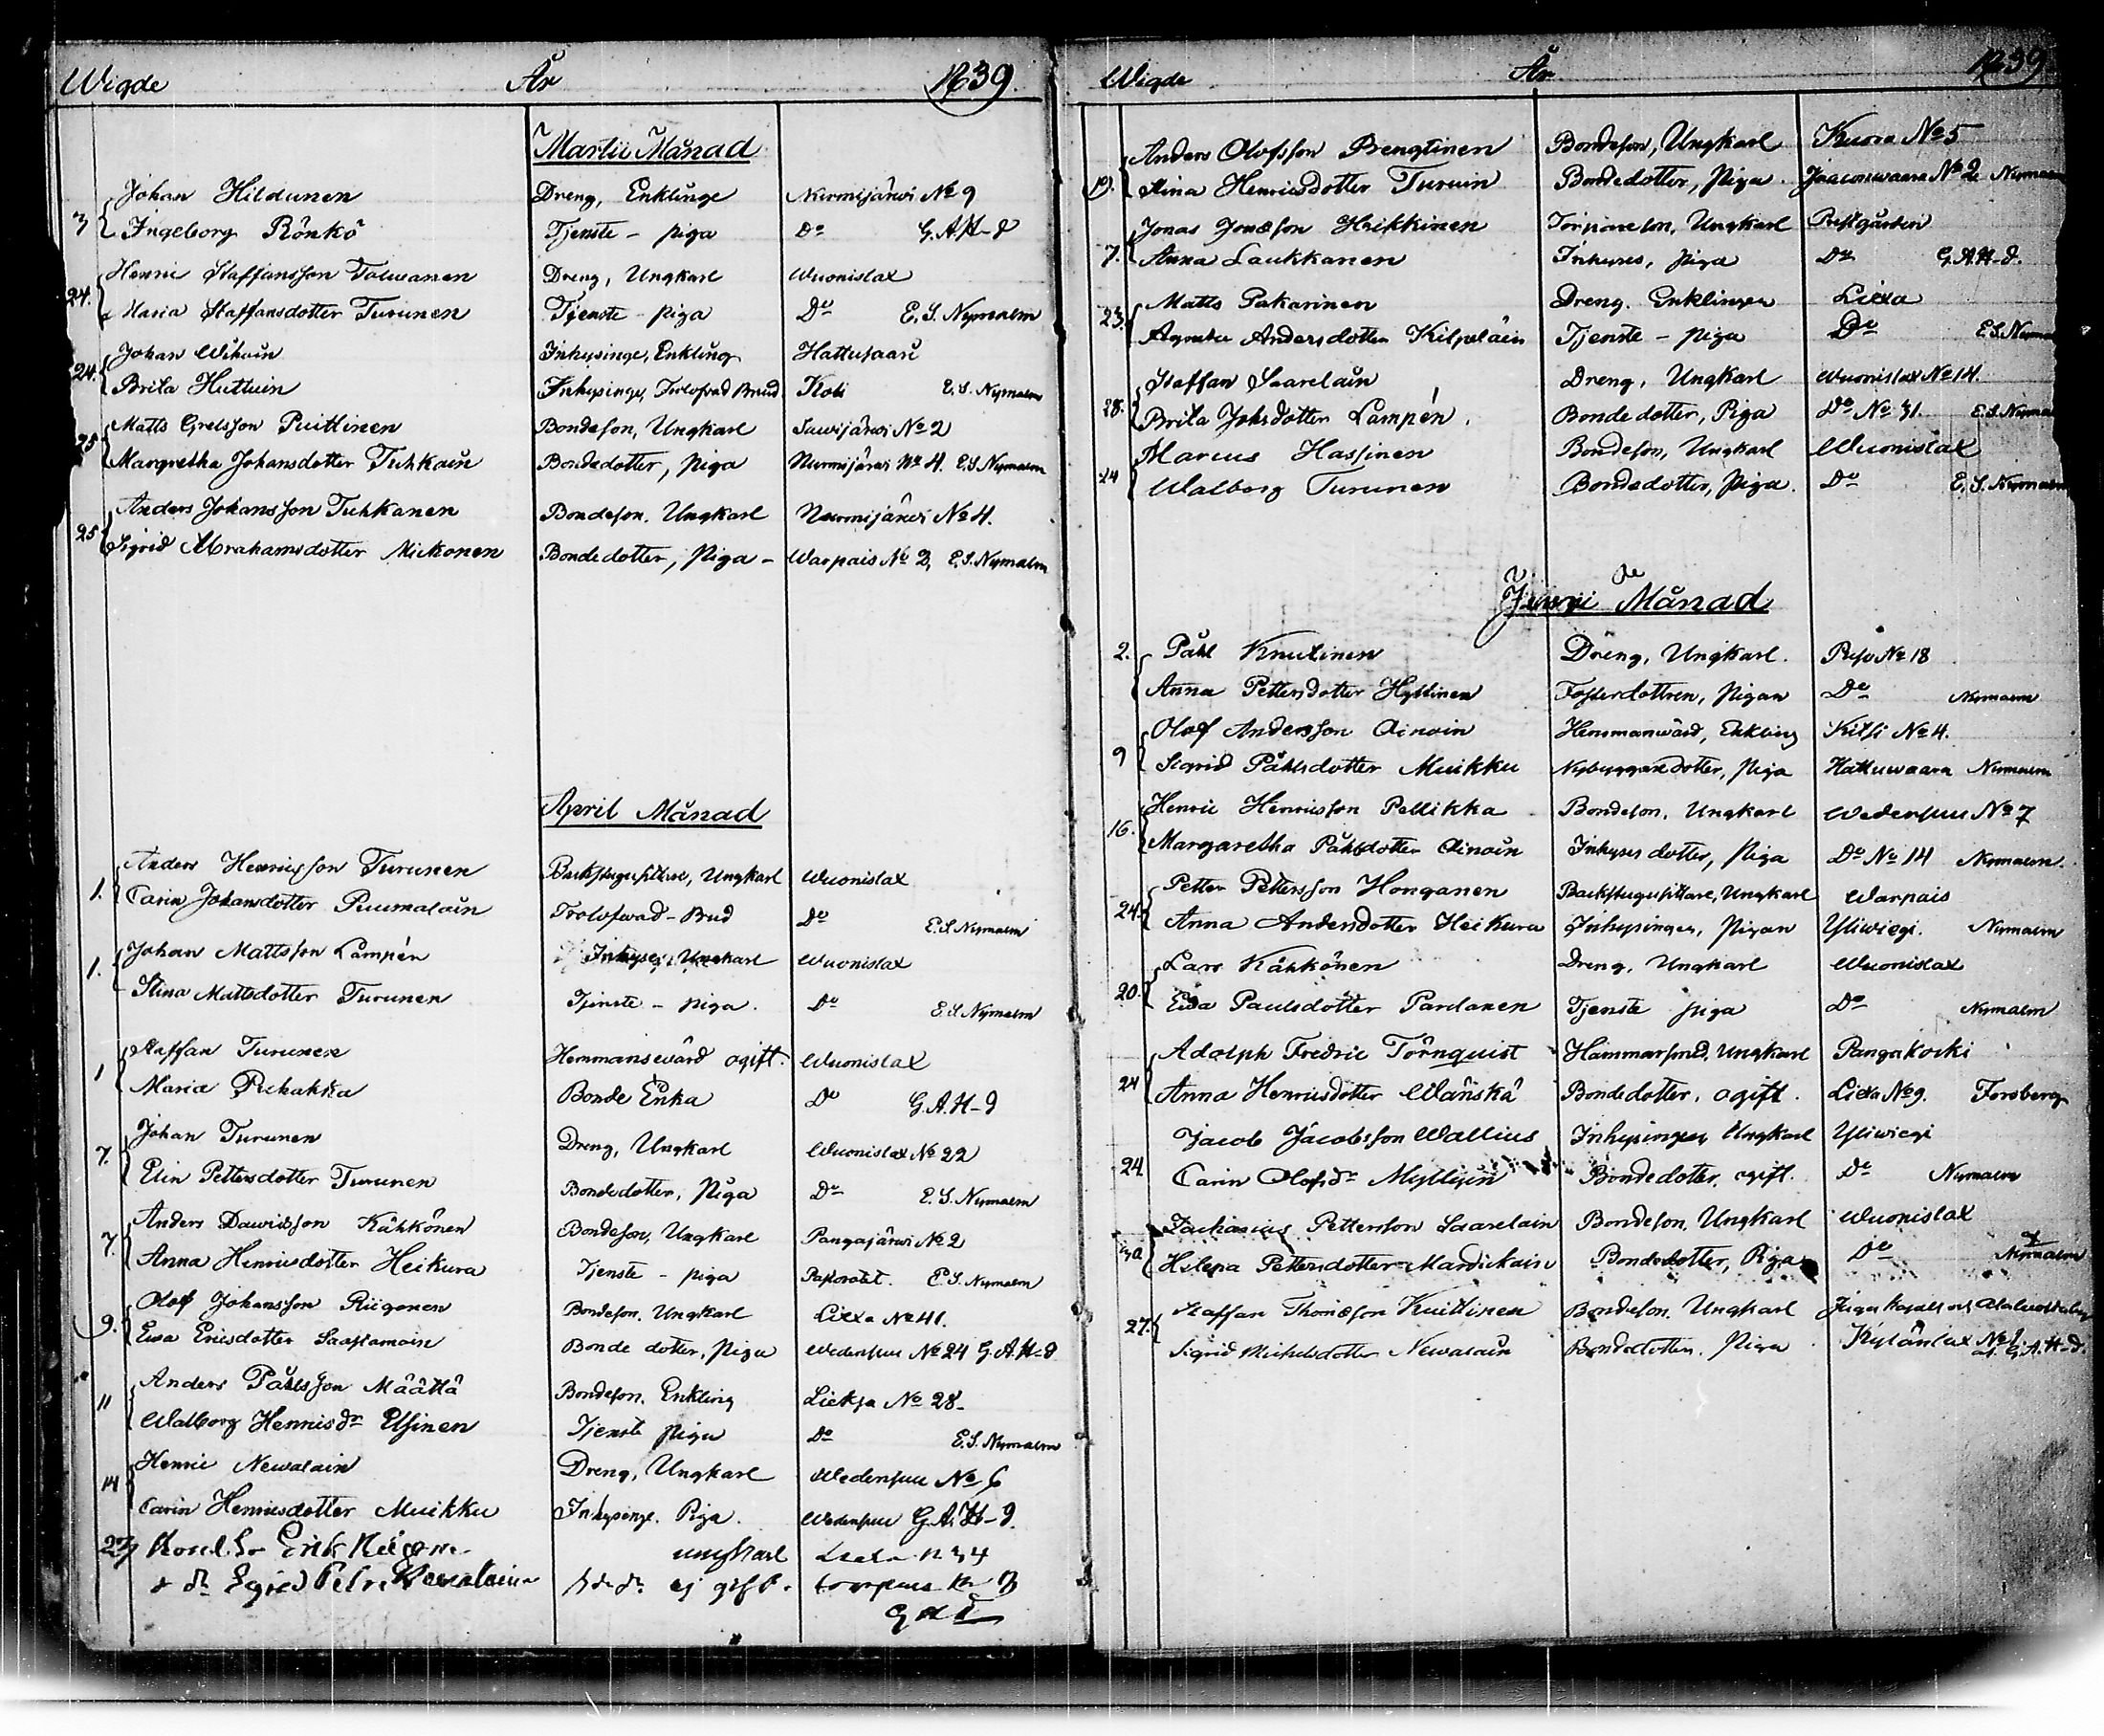 Wigde År 1839.
Martii Månad
Johan Hildunen Dreng, Enklinge Nurmijärwi No 9
3 Ingeborg Rönkö Tjenste - piga Do G.A.H-d
Henric Staffansson Tolwanen Dreng, Ungkarl Wuonislax
24. Maria Staffansdotter Turunen Tjenste - piga Do E.S. Nymalm
Johan Inhysinge, Enkling Hattusaari
24. Brita Huttuin Inhysinge, Trolofwad Brud Koli E.S. Nymalm
Matts Grelsson Puittinen Bondeson, Ungkarl Sawijärwi No 2
25 Margretha Johansdotter Tuhkain Bondedotter, piga Nurmijärwi No 4. E.S. Nymalm
Anders Johansson Tuhkanen Bondeson. Ungkarl Nurmijärwi No 4.
25 Sigrid Abrahamsdotter Mickonen Bondedotter, Piga - Warpais No 2, E.S. Nymalm
April Månad
Anders Henricsson Turunen Backstugusittare, Ungkarl Wuonislax
1. Carin Johansdotter Puumalain Trolofwad - Brud Do E.S. Nymalm
Johan Mattsson Lampén Inhyses, Ungkarl Wuonislax
1. Stina Mattsdotter Turunen Tjenste - piga. Do E.S. Nymalm
Staffan Turunen Hemmanswärd ogift. Wuonislax
1 Maria Puhakka Bonde Enka Do G.A.H-d
Johan Turunen Dreng, Ungkarl Wuonislax No 22
7. Elin Pettersdotter Turunen Bondedotter, Piga Do E.S. Nymalm
Anders Dawidsson Kähkönen Bondeson, Ungkarl Pangajärwi No 2
7. Anna Henricsdotter Heikura Tjenste - piga Pastoratet. E.S. Nymalm
Olof Johansson Riigonen Bondeson. Ungkarl Liexa No 41.
9. Ewa Ericsdotter Saastamoin Bonde dotter, Piga Wedensuu No 24 G.A.H-d
Anders Påhlsson Määttä Bondeson. Enkling Lieksa No 28.
11 Walborg Henricsdr Elsinen Tjenste piga Do E.S. Nymalm
Henric Newalain Dreng, Ungkarl Wedensuu No 6
14 Carin Henricsdotter Muikku Inhysinge. Piga. Wedensuu G.A.H-d.
27 Erik ungkarl No 34
ej gift.
Wigde År 1839
Anders Olofsson Bengtinen Bondeson, Ungkarl Kuora No 5
19. Stina Henricsdotter Turuin Bondedotter, Piga. Jaaconwaara No 2 Nymalm
Jonas Jonæson Heikkinen Torpareson, Ungkarl Prestgården
7. Anna Laukkanen Inhyses, Piga Do G.A.H-d.
Matts Pakarinen Dreng. Enklingen Liexa
23. Agneta Andersdotter Kilpeläin Tjenste - piga Do E.S. Nymalm
Staffan Saarelain Dreng, Ungkarl Wuonislax No 14.
28. Brita Johsdotter Lampén. Bonde dotter, Piga Do No 31. E.S. Nymalm
Marcus Hassinen Bondeson, Ungkarl Wuonislax
24 Walborg Turunen Bondedotter, Piga. Do E.S. Nymalm
Junii Månad
2. Påhl Knutinen Dreng, Ungkarl. No 18
Anna Pettersdotter Hyttinen Fosterdottren, Pigan Do Nymalm
Olof Andersson Ainoin Hemmanwärd, Enkling Kitsi No 4.
9 Sigrid Påhlsdotter Muikku Nybyggaredotter, Piga Hattuwaara Nymalm
Henric Henricsson Pellikka Bondeson. Ungkarl Wedensuu No 7
16. Margaretha Påhlsdotter Ainoin Inhyses dotter, Piga Do No 14 Nymalm.
Petter Pettersson Honganen Backstugusittare, Ungkarl Warpais
24. Anna Andersdotter Heikura Inhysingen, Pigan Yliwiegi. Nymalm
Lars Kähkönen Dreng, Ungkarl Wuonislax
20. Ewa Paulsdotter Pardanen Tjenste piga Do Nymalm
Adolph Fredric Törnquist Hammarsmed, Ungkarl Pangakoski
24 Anna Henricsdotter Wänskä Bondedotter, ogift. Liexa No 9. Forsberg
Jacob Jacobsson Wallius Inhysingen Ungkarl Yliwiegi
24. Carin Olofsdr Myllyin Bondedotter, ogift. Do Nymalm
Zacharias Petterson Saarelain Bondeson, Ungkarl Wuonislax
30 Helena Pettersdotter Mardickain Bondedotter, Piga Do Nymalm
Staffan Thomæson Kuittinen Bondeson. Ungkarl Juga Kapell
27. Sigrid Michelsdotter Newalain Bondedotter, Piga Kylänlax No 1 G.A.H-d.